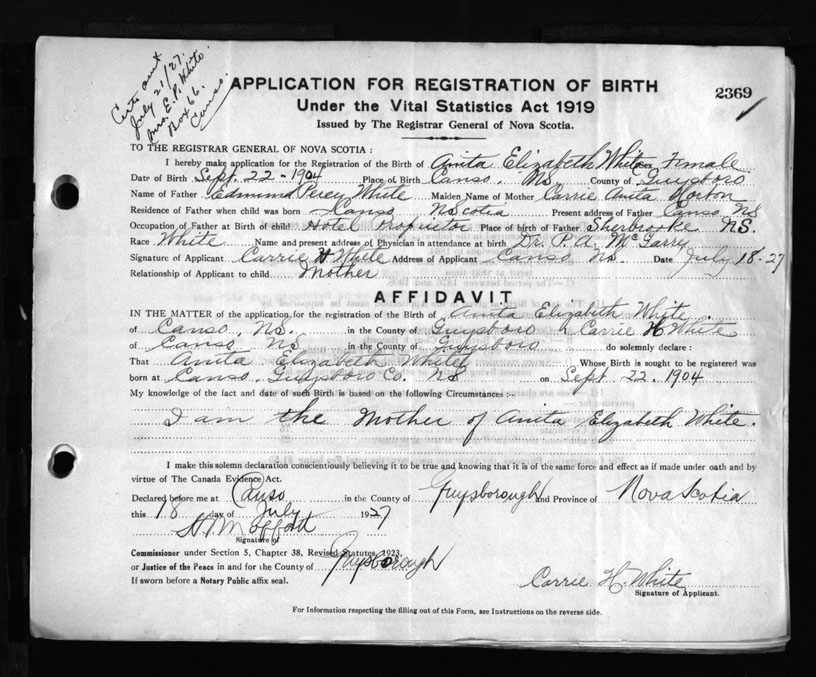 Certs sent
July 21/27.
Mrs. E. P. White.
Box 66.
Canso.
APPLICATION FOR REGISTRATION OF BIRTH
2369
Under the Vital Statistics Act 1919
Issued by The Registrar General of Nova Scotia.
TO THE REGISTRAR GENERAL OF NOVA SCOTIA :
I hereby make application for the Registration of the Birth of Anita Elizabeth White Sex Female
Date of Birth Sept. 22 - 1904 Place of Birth Canso. NS. County of Guysboro
Name of Father Edmund Percy White Maiden Name of Mother Carrie Anita Horton
Residence of Father when child was born Canso N Scotia Present address of Father Canso NS
Occupation of Father at Birth of child Hotel Proprietor Place of Birth of Father Sherbrooke NS.
Race White Name and present address of Physician in attendance at birth Dr. P. A. McGarry
Signature of Applicant Carrie H White Address of Applicant Canso NS. Date July 18 - 27
Relationship of Applicant to child Mother
AFFIDAVIT
IN THE MATTER of the application for the registration of the Birth of Anita Elizabeth White.
of Canso, NS. in the County of Guysboro I, Carrie H White
of Canso NS in the County of Guysboro do solemnly declare :
That Anita Elizabeth White Whose Birth is sought to be registered was
born at Canso, Guysboro Co. NS on Sept 22. 1904
My knowledge of the fact and date of such Birth is based on the following Circumstances :-
I am the Mother of Anita Elizabeth White.
I make this solemn declaration conscientiously believing it to be true and knowing that it is of the same force and effect as if made under oath and by
virtue of The Canada Evidence Act.
Declared before me at Canso in the County of Guysborough and Province of Nova Scotia
this 18 day of July 1927
Signature of
Commissioner under Section 5, Chapter 38, Revised Statutes, 1923.
or Justice of the Peace in and for the County of Guysborough
If sworn before a Notary Public affix seal.
Carrie H. White
Signature of Applicant.
For Information respecting the filling out of this Form, see Instructions on the reverse side.